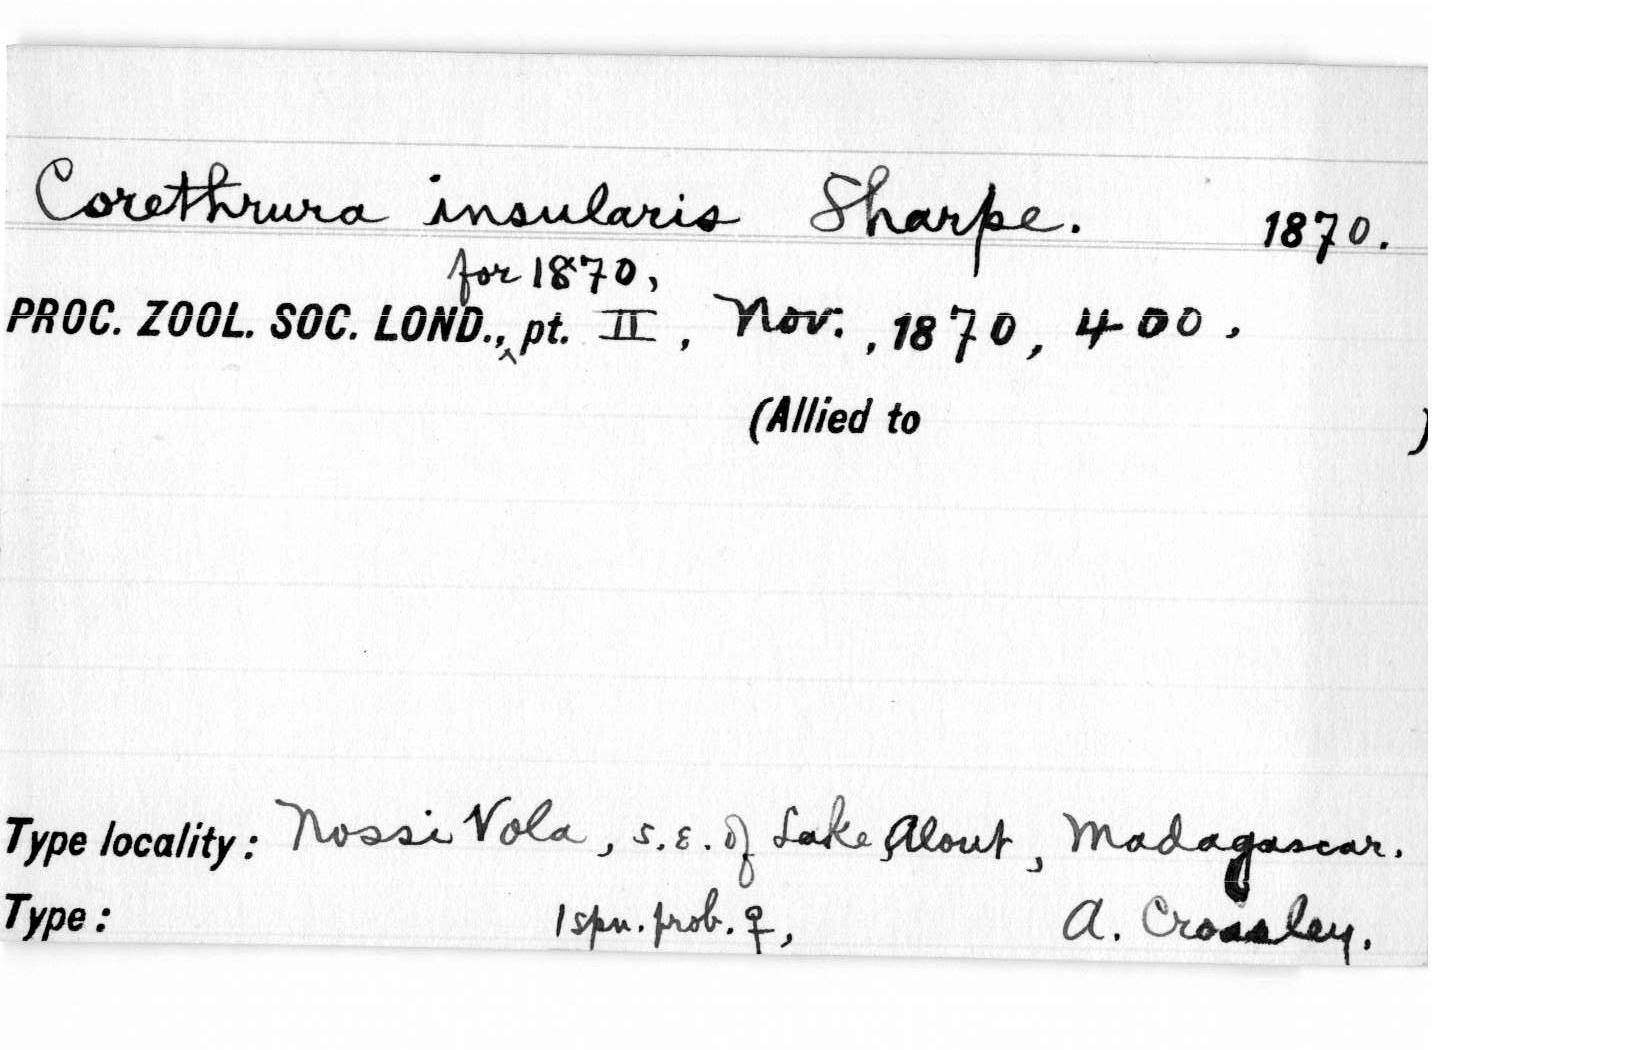 Corethrura insularis Sharpe. 1870.
for 1870,
PROC. ZOOL. SOC. LOND.,‸ pt. II, Nov., 1870, 400,
(Allied to )
Type locality: Nossi Vola, S.E. of Lake Alout, Madagascar.
Type: 1 spn. prob. ♀, A. Crossley.